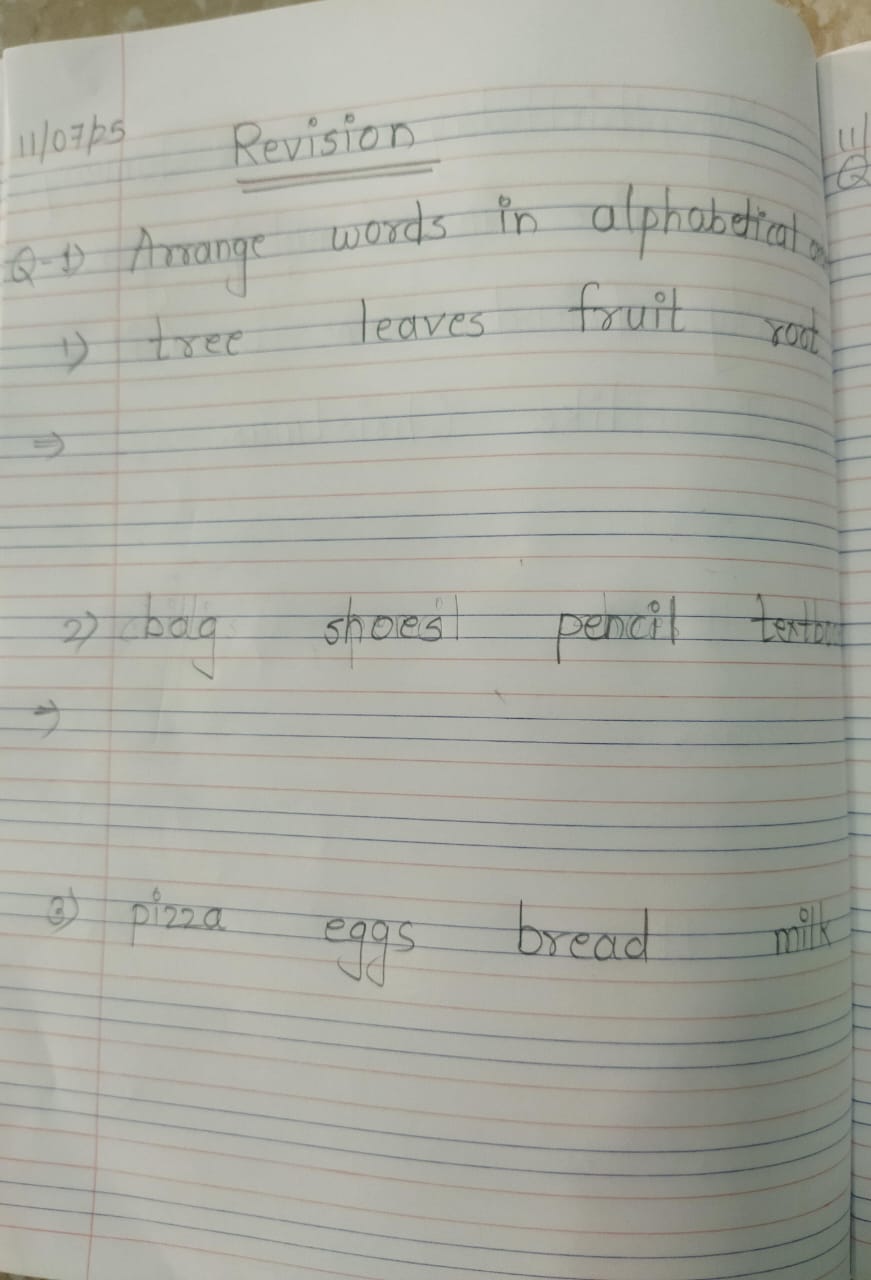 11/07/25
Revision
Q-1) Arrange words in alphabetical
1) tree leaves fruit root
⇒
2) bag shoes pencil
⇒
3) pizza eggs bread milk